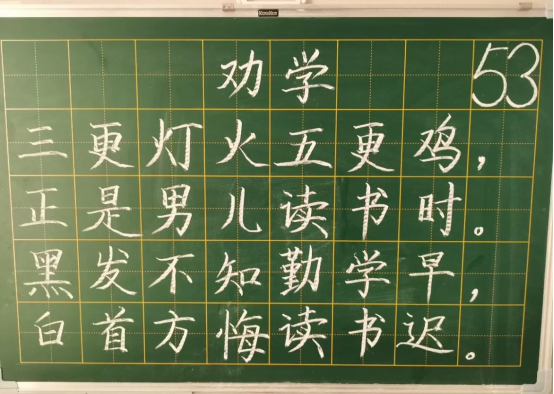 劝学 53
三更灯火五更鸡，
正是男儿读书时。
黑发不知勤学早，
白首方悔读书迟。